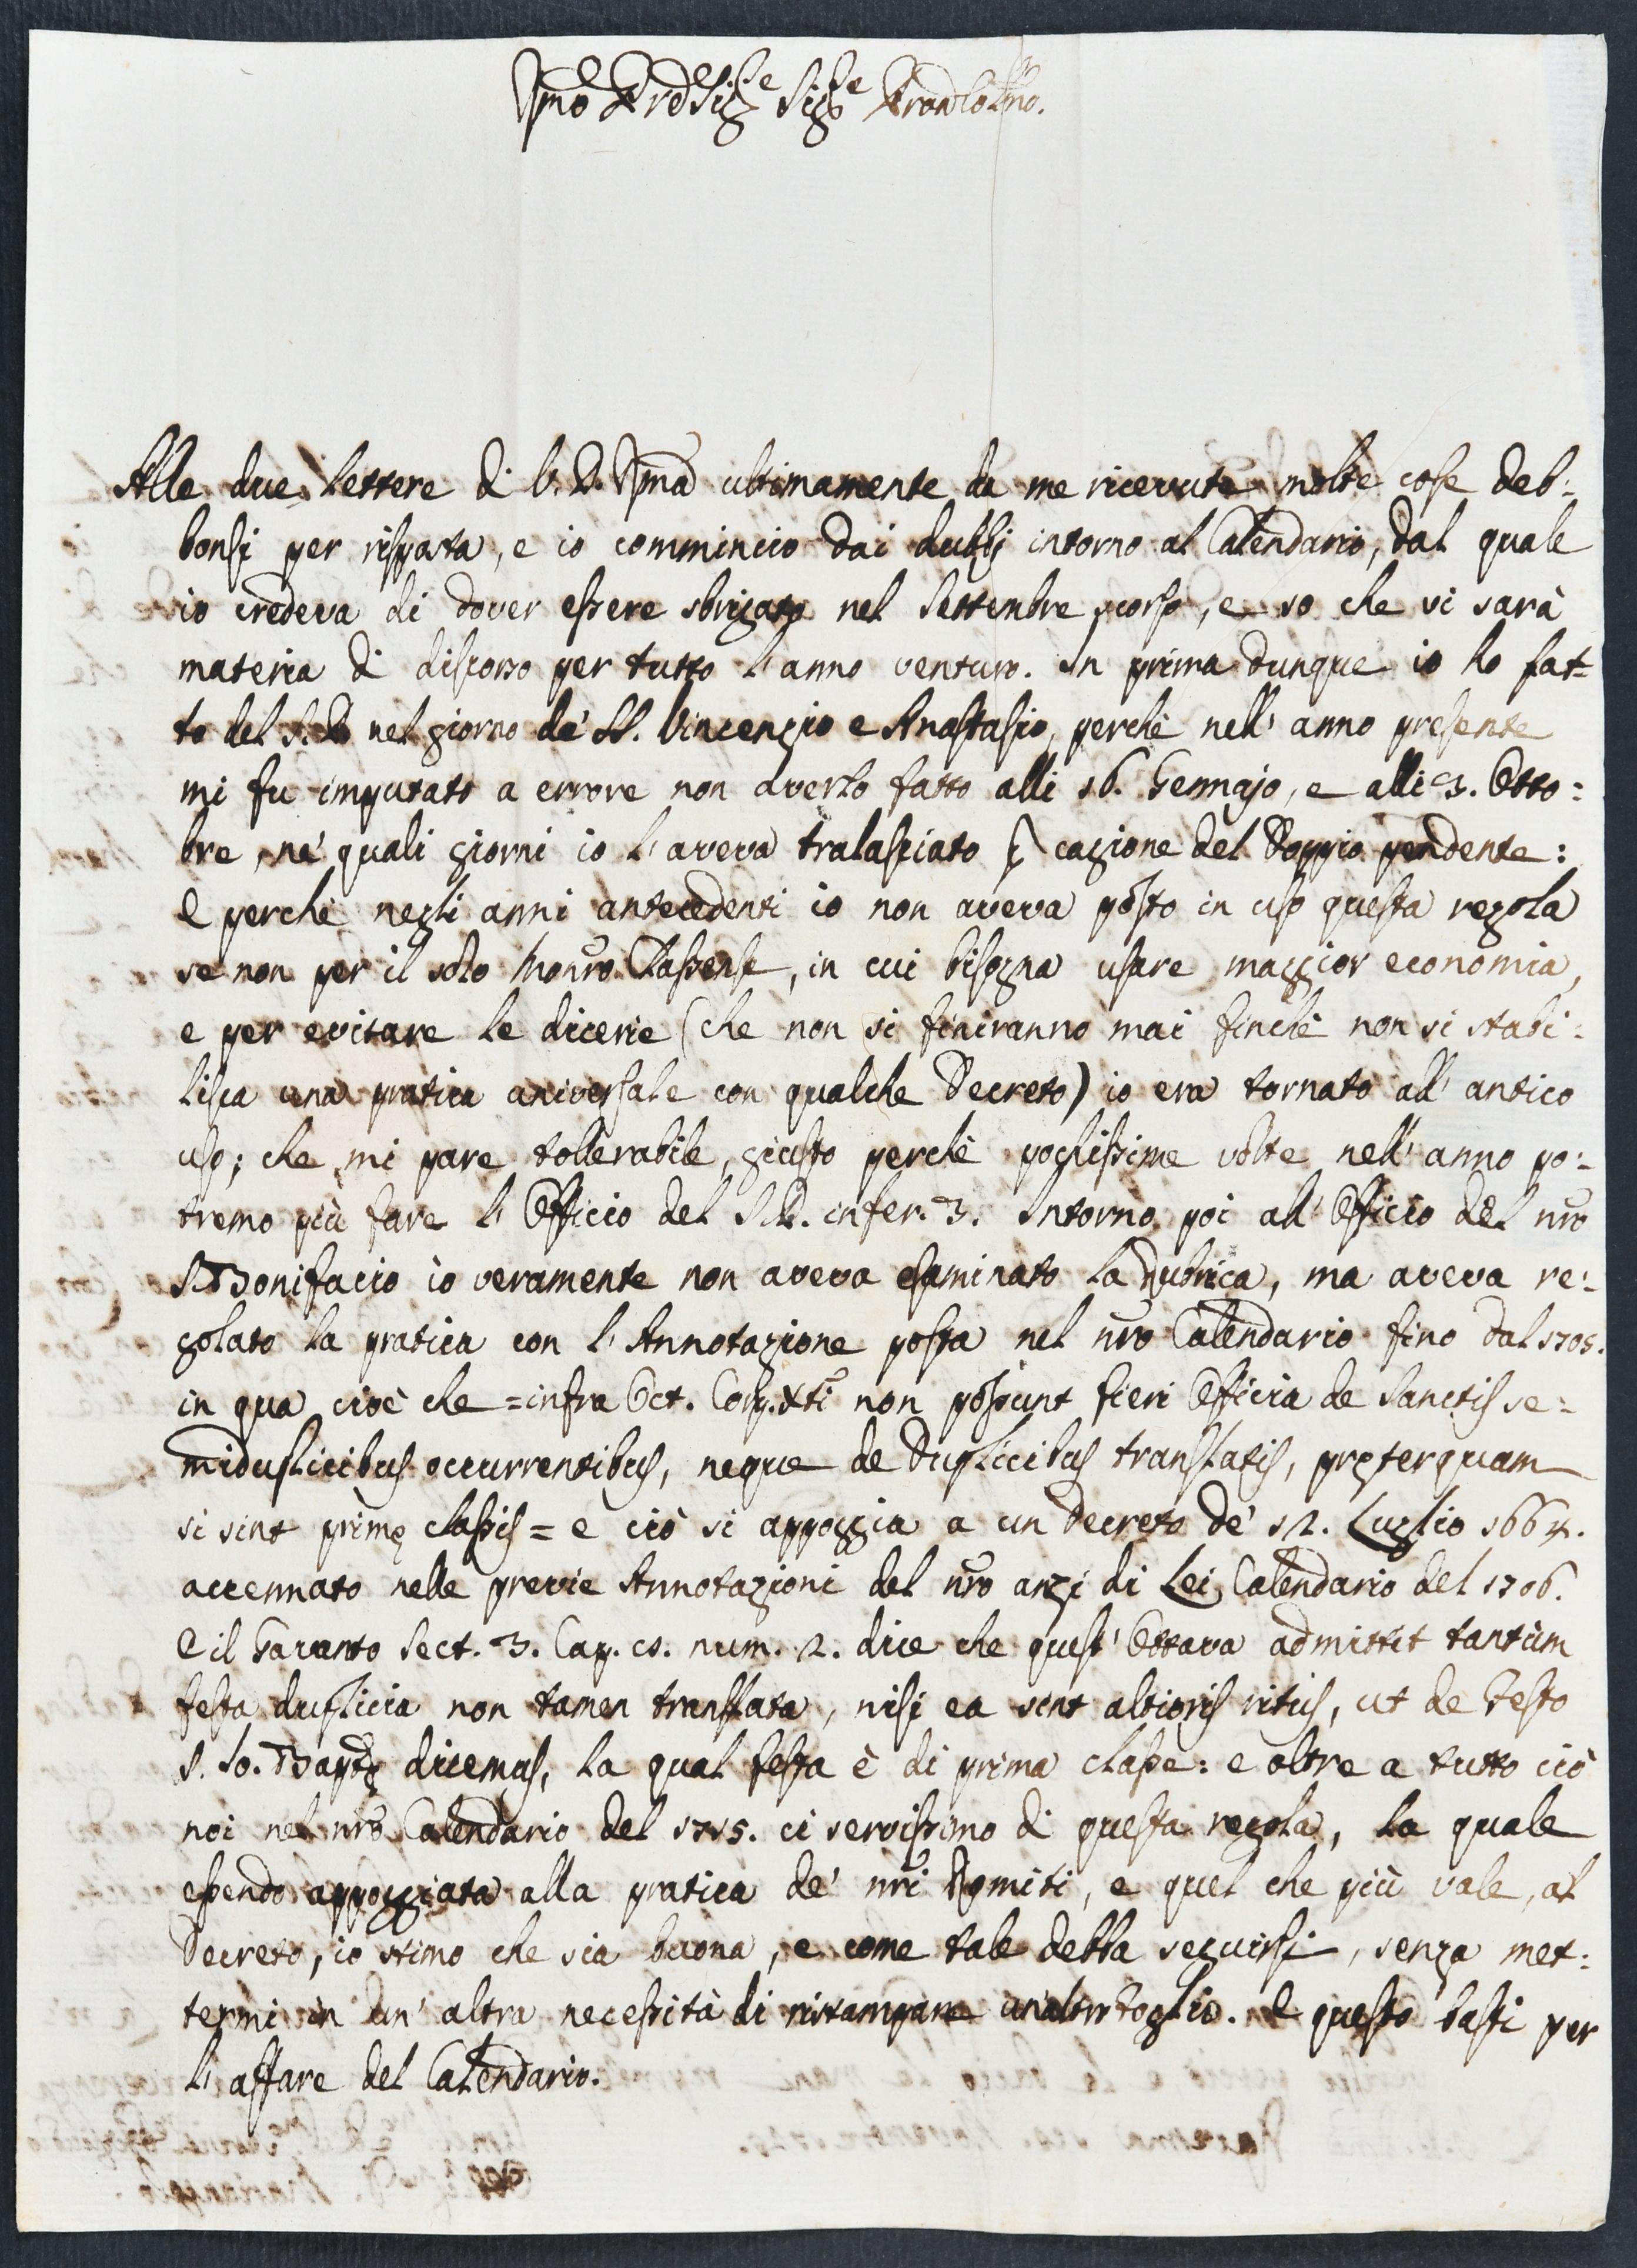 Alle due Lettere di V. P. Illma ultimamente da me ricevute molte cose deb:
bonsi per risposta, e io commincio dai dubbj intorno al Calendario, dal quale
io credeva di dover essere sbrigato nel Settembre scorso, e so che vi sarà
materia di discorso per tutto l'anno venturo. In prima dunque io ho fat:
to del S. P. nel giorno de' SS. Vincenzio e Anastasio, perchè nell' anno presente
mi fu imputato a errore non averlo fatto alli 16. Gennajo, e alli 3. Otto:
bre, ne' quali giorni io l'aveva tralasciato p cagione del Doppio pendente:
E perchè negli anni antecedenti io non aveva posto in uso questa regola
se non per il solo Monro. Classense, in cui bisogna usare maggior economia,
e per evitare le dicerie (che non si finiranno mai finchè non si stabi:
lisca una pratica universale con qualche Decreto) io era tornato all' antico
uso; che mi pare tollerabile, giusto perchè pochissime volte nell' anno po:
tremo più fare l'Officio del S. P. in fer. 3. Intorno poi all' Officio del nro
S. Bonifacio io veramente non aveva esaminato la Rubrica, ma aveva re:
golato la pratica con l'Annotazione posta nel nro Calendario fino dal 1705.
in qua cioè che = infra Oct. Corp. Xti non possunt fieri Officia de Sanctis se:
miduplicibus occurrentibus, neque de Duplicibus translatis, pręterquam
si sint primę classis = e ciò si appoggia a un Decreto de' 12. Luglio 1664.
accennato nelle previe Annotazioni del nro anzi di Lei Calendario del 1706.
E il Gavanto Sect. 3. Cap. num. 2. dice che quest' Ottava admittit tantùm
festa duplicia non tamen translata, nisi ea sint altioris ritus, ut de Festo
S. Io. Baptę dicemus, la qual festa è di prima classe: e oltre a tutto ciò
noi nel nro Calendario del 1715. ci servissimo di questa regola, la quale
essendo appoggiata alla pratica de' nri Romiti, e quel che più vale, al
Decreto, io stimo che sia buona, e come tale debba seguirsi, senza met:
termi in un' altra necessità di ristampare un'altro foglio. E questo basti per
l'affare del Calendario.